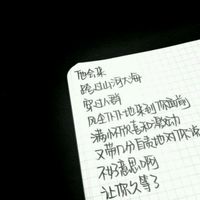 他会来
跨过山河大海
穿过人群
风尘仆仆地来到你面前
满怀欢喜和激动
又带几分自责地对你说
不好意思啊
让你久等了